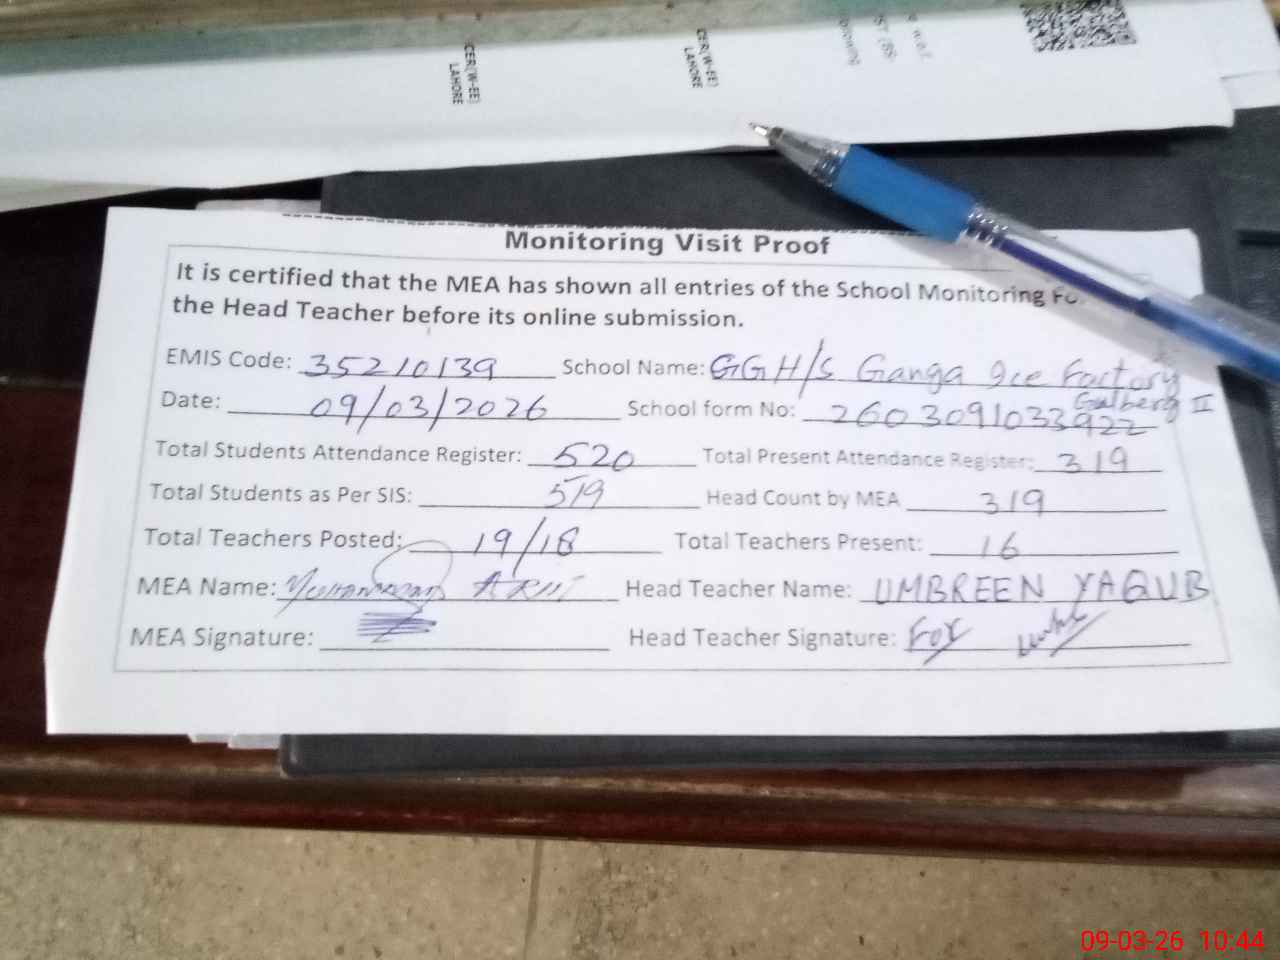 CER(W-EE)
LAHORE
CER(W-EE)
LAHORE
Monitoring Visit Proof
It is certified that the MEA has shown all entries of the School Monitoring
the Head Teacher before its online submission.
EMIS Code: 35210139 School Name: GGH/S Ganga Ice Factory
Gulberg II
Date: 09/03/2026 School form No: 2603091033922
Total Students Attendance Register: 520 Total Present Attendance Register: 319
Total Students as Per SIS: 519 Head Count by MEA 319
Total Teachers Posted: 19/18 Total Teachers Present: 16
MEA Name: Head Teacher Name: UMBREEN YAQUB
MEA Signature: Head Teacher Signature: For
09-03-26 10:44